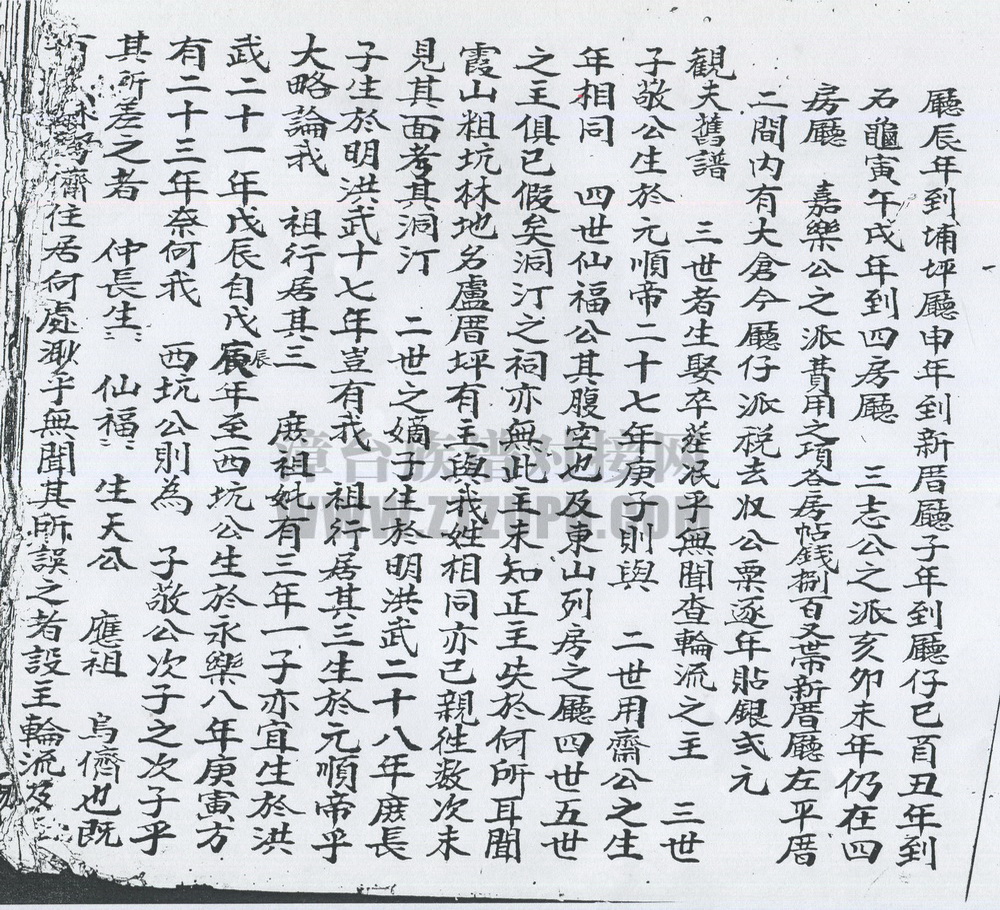 廳辰年到埔坪廳申年到新厝廳子年到廳仔巳酉丑年到
石龜寅午戌年到四房廳　三志公之派亥卯未年仍在四
房廳　嘉樂公之派費用之項各房帖錢捌百又帶新厝廳左平厝
二間內有大倉今廳仔派税去收公粟逐年貼銀弍元
觀夫舊譜　三世者生娶卒葬泯乎無聞查輪流之主　三世
子敬公生於元順帝二十七年庚子則與　二世用齋公之生
年相同　四世仙福公其腹空也及東山列房之廳四世五世
之主俱已假矣洞汀之祠亦無此主未知正主失於何所耳聞
霞山粗坑林地名廬厝坪有主與我姓相同亦已親往数次未
見其面考其洞汀　二世之嫡子生於明洪武二十八年庶長
子生於明洪武十七年豈有我　祖行居其三生於元順帝乎
大略論我　祖行居其三　庶祖妣有三年一子亦宜生於洪
武二十一年戊辰自戊寅辰年至西坑公生於永樂八年庚寅方
有二十三年奈何我　西坑公則為　子敬公次子之次子乎
其所差之者　仲長生　仙福　生天公　應祖　烏儕也既
百　　儕住居何處渺乎無聞其所誤之者設主輪流及三
漳台族谱对接网
WWW.ZZTPP.COM